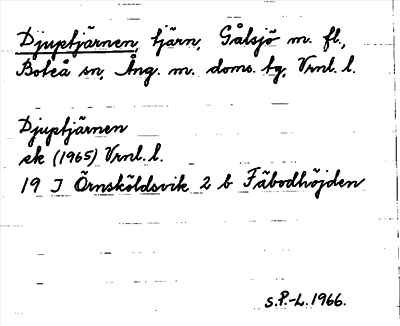 Djuptjärnen, tjärn, Gålsjö m. fl.,
Boteå sn, Ång. m. doms. tg, Vrnl. l.
Djuptjärnen
ek (1965) Vrnl. l.
19 J Örnsköldsvik 2 b Fäbodhöjden
S.P.-L. 1966.